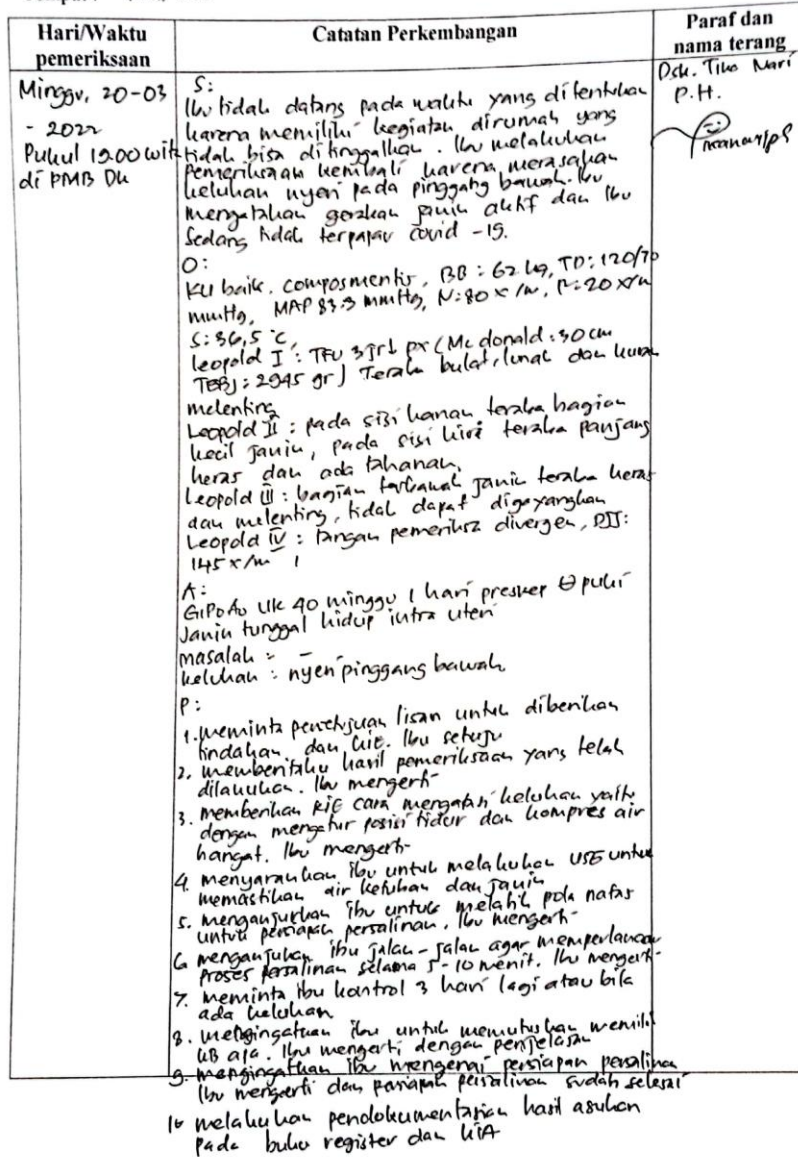 Hari/Waktu
pemeriksaan
Catatan Perkembangan
Paraf dan
nama terang
Minggu, 20-03
- 2022
Pukul 19.00 wita
di PMB Dk
S:
Ibu tidak datang pada waktu yang ditentukan
karena memiliki kegiatan dirumah yang
tidak bisa ditinggalkan. Ibu melakukan
Pemeriksaan kembali karena merasakan
keluhan nyeri pada pinggang bawah. Ibu
mengatakan gerakan janin aktif dan Ibu
Sedang tidak terpapar covid -19.
O:
KU baik, composmentis, BB: 62 kg, TD: 120/70
mmHg, MAP 83.3 mmHg, N: 80 x/m, R: 20 x/m
S: 36,5 °C,
Leopold I : TFU 3jr↓ px (Mc donald : 30 cm
TBBJ: 2945 gr) Teraba bulat, lunak dan kurang
melenting
Leopold II : pada sisi kanan teraba bagian
kecil janin, pada sisi kiri teraba panjang
keras dan ada tahanan,
Leopold III : bagian terbawah janin teraba keras
dan melenting, tidak dapat digoyangkan
Leopold IV : tangan pemeriksa divergen, DJJ:
145 x/m
A:
G1P0A0 UK 40 minggu 1 hari preskep ⊖ puki
Janin tunggal hidup intra uteri
masalah : -
keluhan : nyeri pinggang bawah
P:
1. meminta persetujuan lisan untuk diberikan
tindakan dan kie. Ibu setuju
2. memberitahu hasil pemeriksaan yang telah
dilakukan. Ibu mengerti
3. memberikan KIE cara mengatasi keluhan yaitu
dengan mengatur posisi tidur dan kompres air
hangat. Ibu mengerti
4. menyarankan ibu untuk melakukan USG untuk
memastikan air ketuban dan janin
5. menganjurkan ibu untuk melatih pola nafas
untuk persiapan persalinan. Ibu mengerti
6 menganjurkan ibu jalan-jalan agar memperlancar
proses persalinan selama 5-10 menit. Ibu mengerti
7. meminta ibu kontrol 3 hari lagi atau bila
ada keluhan
8. mengingatkan ibu untuk memutuskan memilih
KB apa. Ibu mengerti dengan penjelasan
9. mengingatkan ibu mengenai persiapan persalinan
Ibu mengerti dan persiapan persalinan sudah selesai
10 melakukan pendokumentasian hasil asuhan
pada buku register dan KIA
Dsk. Tika Mari
P.H.